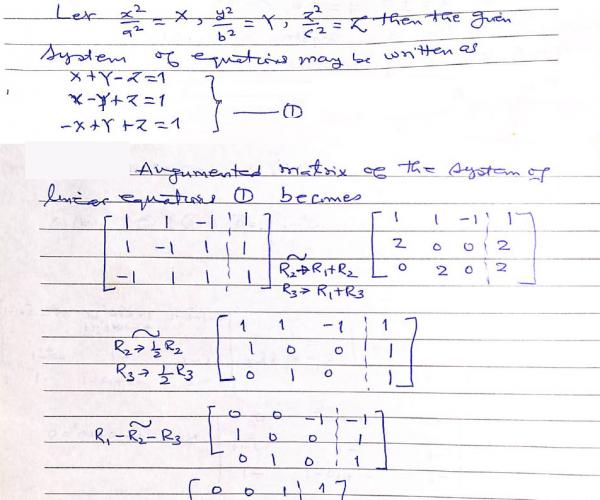 Let x²/a² = X, y²/b² = Y, z²/c² = Z then the given
System of equations may be written as
X+Y-Z=1
X-Y+Z=1
-X+Y+Z=1
—— ①
Augumented matrix of the system of
linear equations ① becomes
[1 1 -1 | 1] [1 1 -1 | 1]
[1 -1 1 | 1] ~ R₂→R₁+R₂ [2 0 0 | 2]
[-1 1 1 | 1] R₃→R₁+R₃ [0 2 0 | 2]
[1 1 -1 | 1]
~ R₂→½R₂ [1 0 0 | 1]
R₃→½R₃ [0 1 0 | 1]
[0 0 -1 | -1]
~ R₁-R₂-R₃ [1 0 0 | 1]
[0 1 0 | 1]
[0 0 1 | 1]